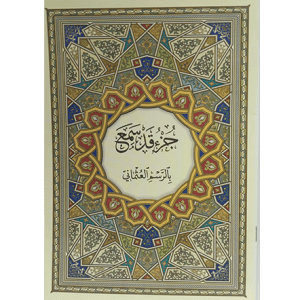 جُزْءُ قَدْ سَمِعَ
بِالرَّسْمِ الْعُثْمَانِي